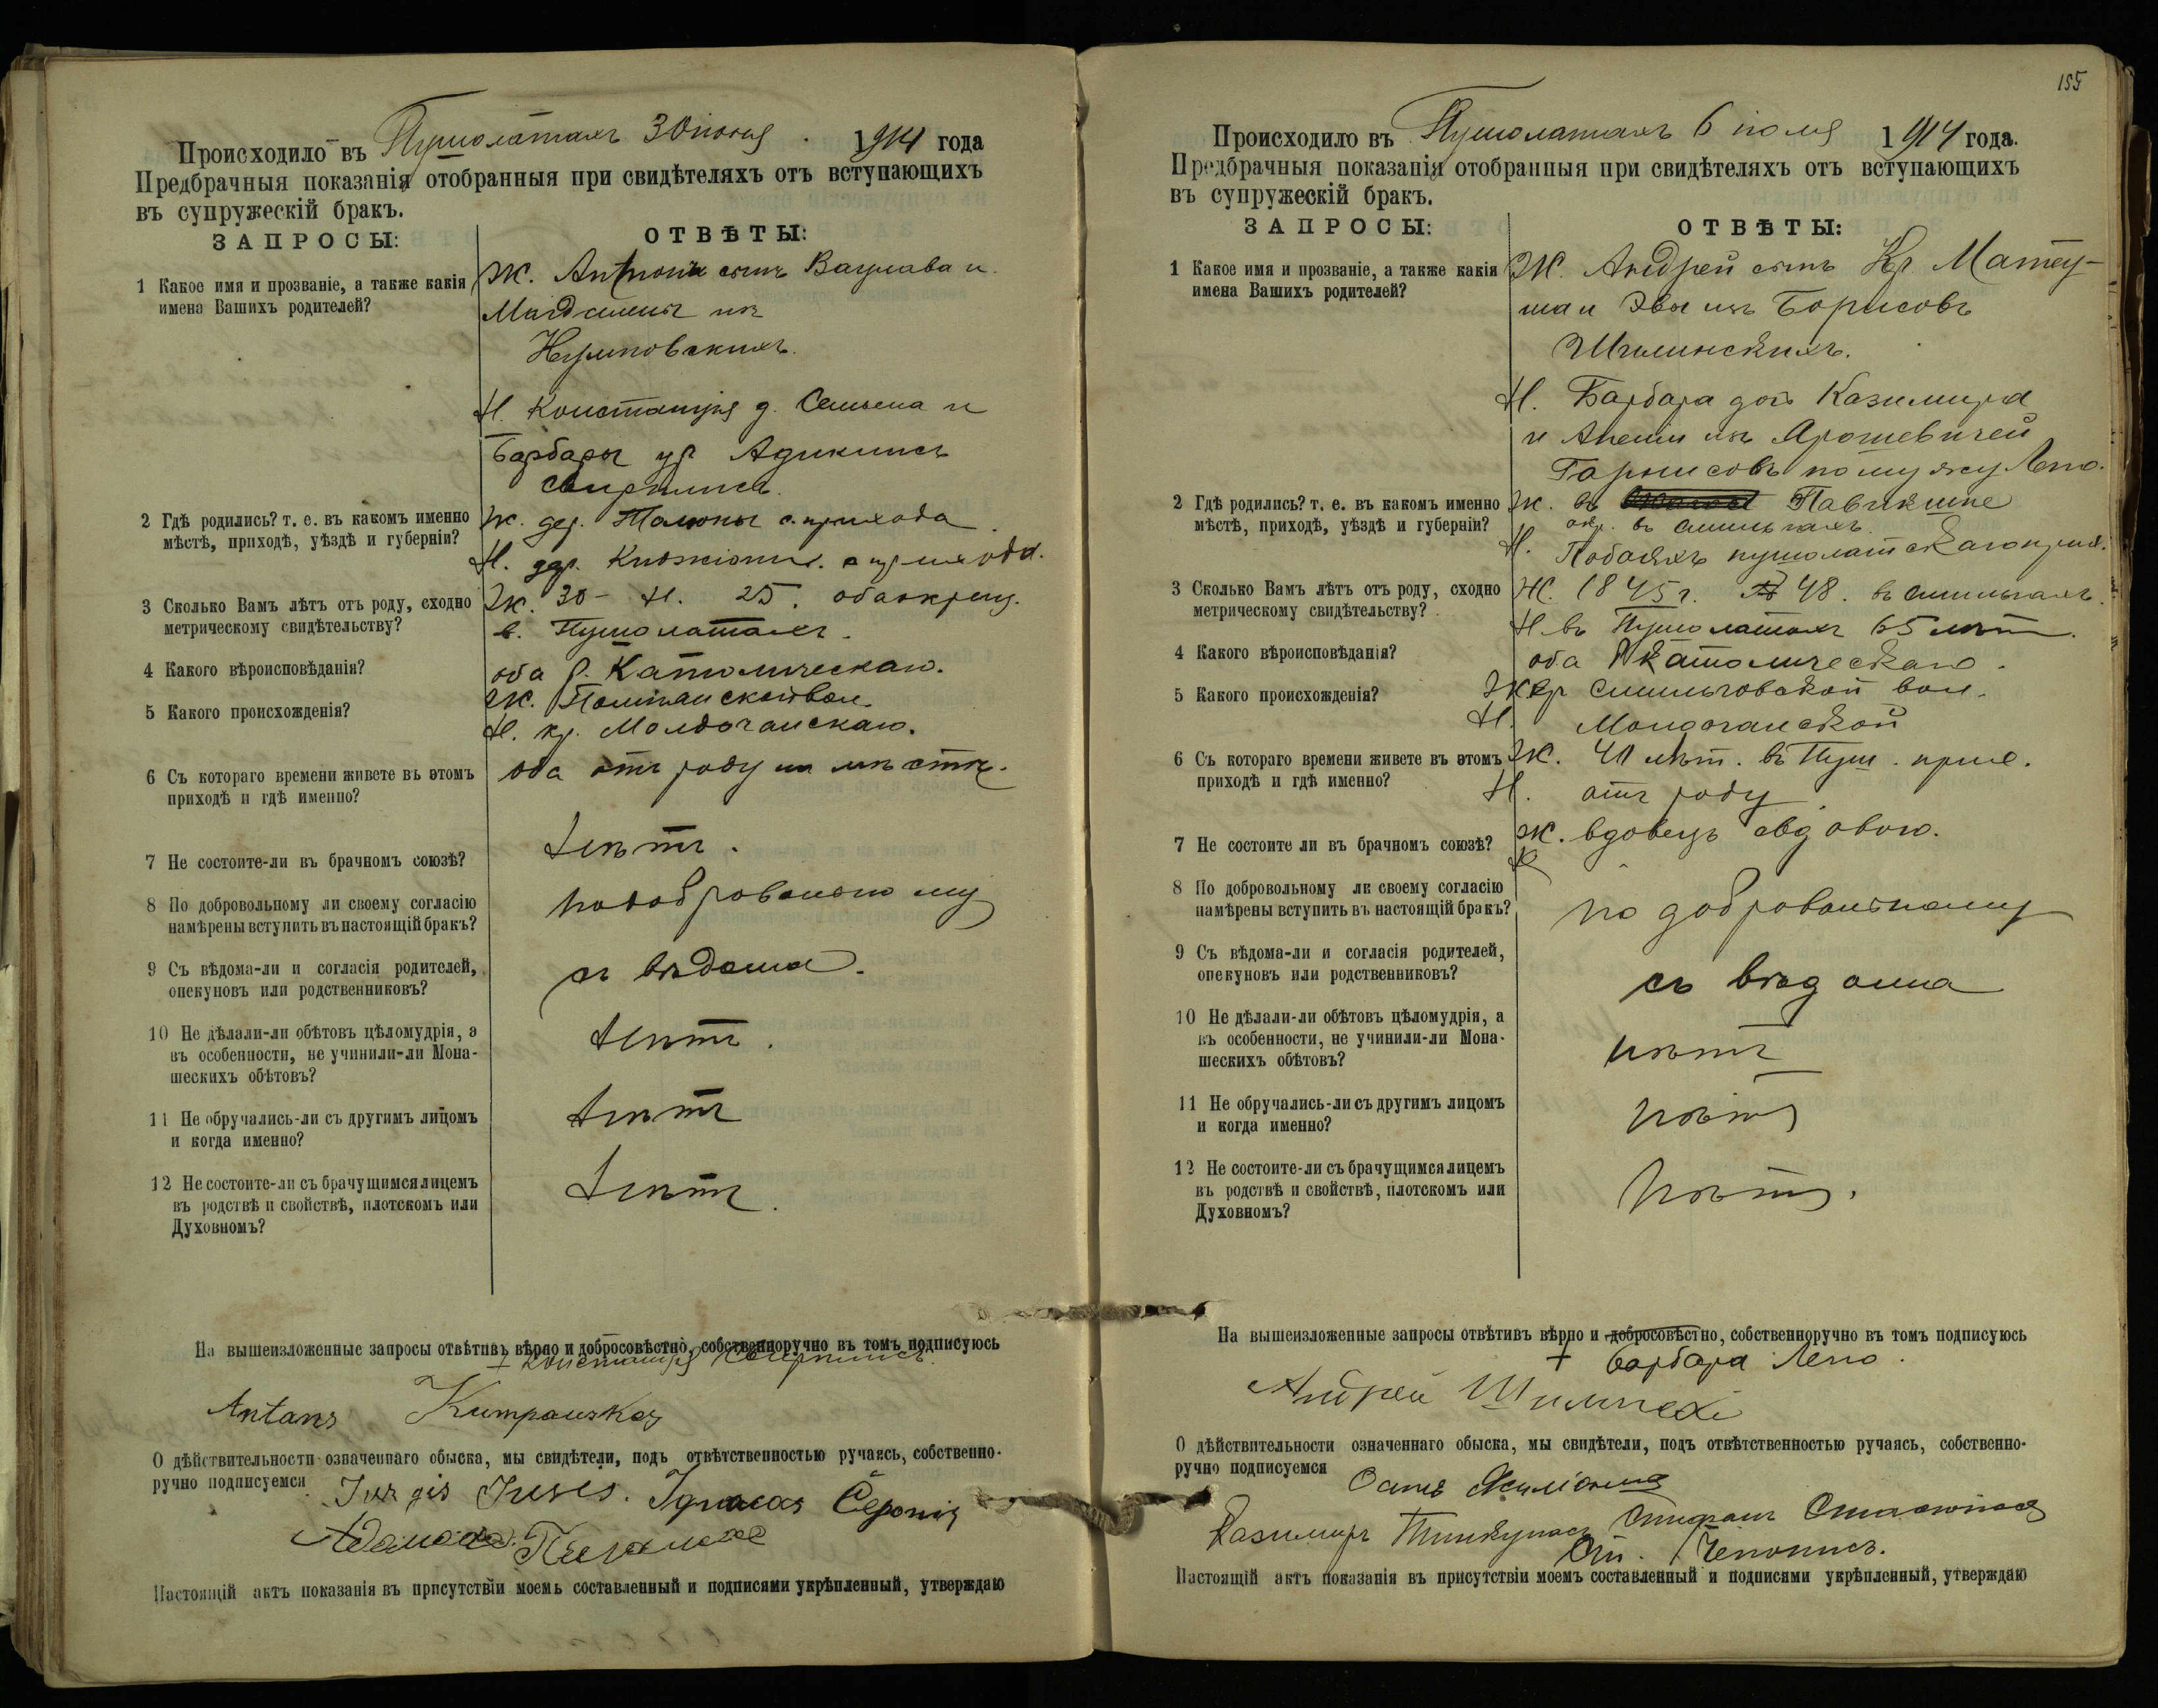 Происходило въ Пушолатахъ 30 июня 1914 года
Предбрачныя показанія отобранныя при свидѣтеляхъ отъ вступающихъ
въ супружескій бракъ.
ЗАПРОСЫ:
ОТВѢТЫ:
1 Какое имя и прозваніе, а также какія
имена Вашихъ родителей?
Ж. Антони сынъ Вацлава и
Магдалены изъ
Кумповскихъ.
Н. Констанція д. Семьена и
Барбары ур
2 Гдѣ родились? т. е. въ какомъ именно
мѣстѣ, приходѣ, уѣздѣ и губерніи?
Ж. дер. с. прихода
Н. дер. с. прихода.
3 Сколько Вамъ лѣтъ отъ роду, сходно
метрическому свидѣтельству?
Ж. 30 – Н. 25. оба окрещ.
в. Пушолатахъ.
4 Какого вѣроисповѣданія?
оба р. Католическаго.
5 Какого происхожденія?
Ж.
Н. кр.
6 Съ котораго времени живете въ этомъ
приходѣ и гдѣ именно?
оба отъ роду на мѣстѣ.
7 Не состоите-ли въ брачномъ союзѣ?
Нѣтъ.
8 По добровольному ли своему согласію
намѣрены вступить въ настоящій бракъ?
по добровольному
9 Съ вѣдома-ли и согласія родителей,
опекуновъ или родственниковъ?
съ вѣдома.
10 Не дѣлали-ли обѣтовъ цѣломудрія, а
въ особенности, не учинили-ли Мона-
шескихъ обѣтовъ?
Нѣтъ.
11 Не обручались-ли съ другимъ лицомъ
и когда именно?
Нѣтъ
12 Не состоите-ли съ брачущимся лицемъ
въ родствѣ и свойствѣ, плотскомъ или
Духовномъ?
Нѣтъ.
На вышеизложенные запросы отвѣтивъ вѣрно и добросовѣстно, собственноручно въ томъ подписуюсь
+ Констанція
Antans Kumpauskas
О дѣйствительности означеннаго обыска, мы свидѣтели, подъ отвѣтственностью ручаясь, собственно-
ручно подписуемся Jurgis Ignacas Čeponis
Настоящій актъ показанія въ присутствіи моемъ составленный и подписями укрѣпленный, утверждаю
155
Происходило въ Пушолатахъ 6 июля 1914 года.
Предбрачныя показанія отобранныя при свидѣтеляхъ отъ вступающихъ
въ супружескій бракъ.
ЗАПРОСЫ:
ОТВѢТЫ:
1 Какое имя и прозваніе, а также какія
имена Вашихъ родителей?
Ж. Андрей сынъ Матеу-
ша и Эвы изъ Борисовъ
Шилинскихъ.
Н. Барбара дочь Казимира
и Анели изъ Ярошевичей
по мужу Лепо.
2 Гдѣ родились? т. е. въ какомъ именно
мѣстѣ, приходѣ, уѣздѣ и губерніи?
Ж. въ
окр. въ Смильгяхъ.
Н. пушолатскаго прих.
3 Сколько Вамъ лѣтъ отъ роду, сходно
метрическому свидѣтельству?
Ж. 1845 г. 48. въ Смильгахъ.
Н въ Пушолатахъ 65 лѣт.
4 Какого вѣроисповѣданія?
оба р католическаго.
5 Какого происхожденія?
Ж кр Смильговской вол.
Н.
6 Съ котораго времени живете въ этомъ
приходѣ и гдѣ именно?
Ж. 40 лѣт. въ Пуш. прих.
Н. отъ роду
7 Не состоите ли въ брачномъ союзѣ?
Ж. вдовецъ съ вдовою.
8 По добровольному ли своему согласію
намѣрены вступить въ настоящій бракъ?
по добровольному
9 Съ вѣдома-ли и согласія родителей,
опекуновъ или родственниковъ?
съ вѣдома
10 Не дѣлали-ли обѣтовъ цѣломудрія, а
въ особенности, не учинили-ли Мона-
шескихъ обѣтовъ?
нѣтъ
11 Не обручались-ли съ другимъ лицомъ
и когда именно?
Нѣтъ
12 Не состоите-ли съ брачущимся лицемъ
въ родствѣ и свойствѣ, плотскомъ или
Духовномъ?
Нѣтъ.
На вышеизложенные запросы отвѣтивъ вѣрно и добросовѣстно, собственноручно въ томъ подписуюсь
+ Барбара Лепо.
Андрей
О дѣйствительности означеннаго обыска, мы свидѣтели, подъ отвѣтственностью ручаясь, собственно-
ручно подписуемся
Казимиръ
Чепонисъ.
Настоящій актъ показанія въ присутствіи моемъ составленный и подписями укрѣпленный, утверждаю